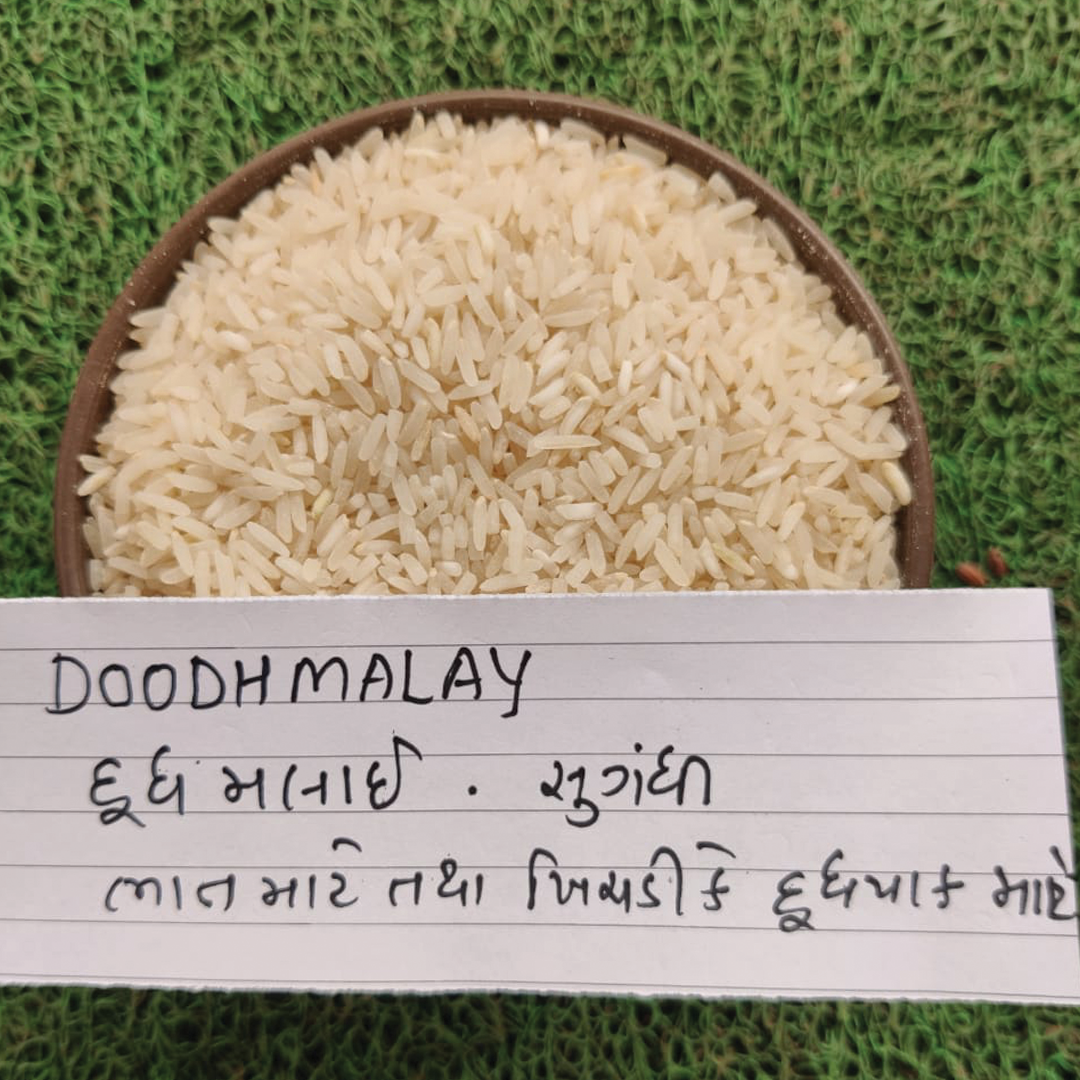 DOODH MALAY
દૂધ મલાઈ . સુગંધી
ભાત માટે તથા ખિચડી કે દૂધપાક માટે